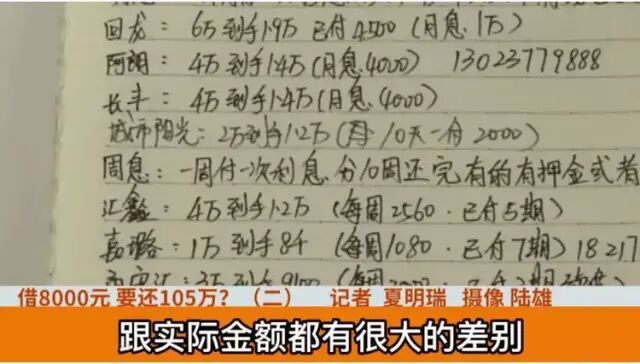 回龙: 6万到手1.9万 已付4500 (月息1万)
阿朗: 4万到手1.4万(月息.4000) 13023779888
长丰: 4万到手1.4万(月息.4000)
城市阳光: 2万到手1.2万 (每10天一付 2000)
周息: 一周付一次利息.分10周还完有的有押金或者
汇鑫: 4万到手1.2万 (每周2560.已付5期)
嘉璐: 1万到手8千 (每周1080.已付7期) 18217
借8000元 要还105万?(二) 记者 夏明瑞 摄像 陆雄
跟实际金额都有很大的差别